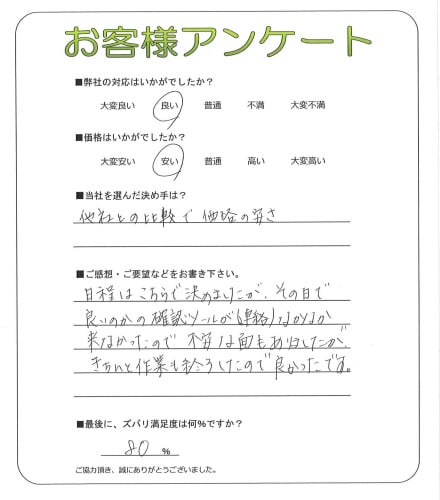 お客様アンケート
■弊社の対応はいかがでしたか？
大変良い 良い 普通 不満 大変不満
■価格はいかがでしたか？
大変安い 安い 普通 高い 大変高い
■当社を選んだ決め手は？
他社との比較で価格の安さ
■ご感想・ご要望などをお書き下さい。
日程はこちらで決めましたが、その日で
良いのかの確認ツールが(連絡)なかなか
来なかったので不安な面もありましたが、
きちんと作業も終了したので良かったです。
■最後に、ズバリ満足度は何%ですか？
80 %
ご協力頂き、誠にありがとうございました。